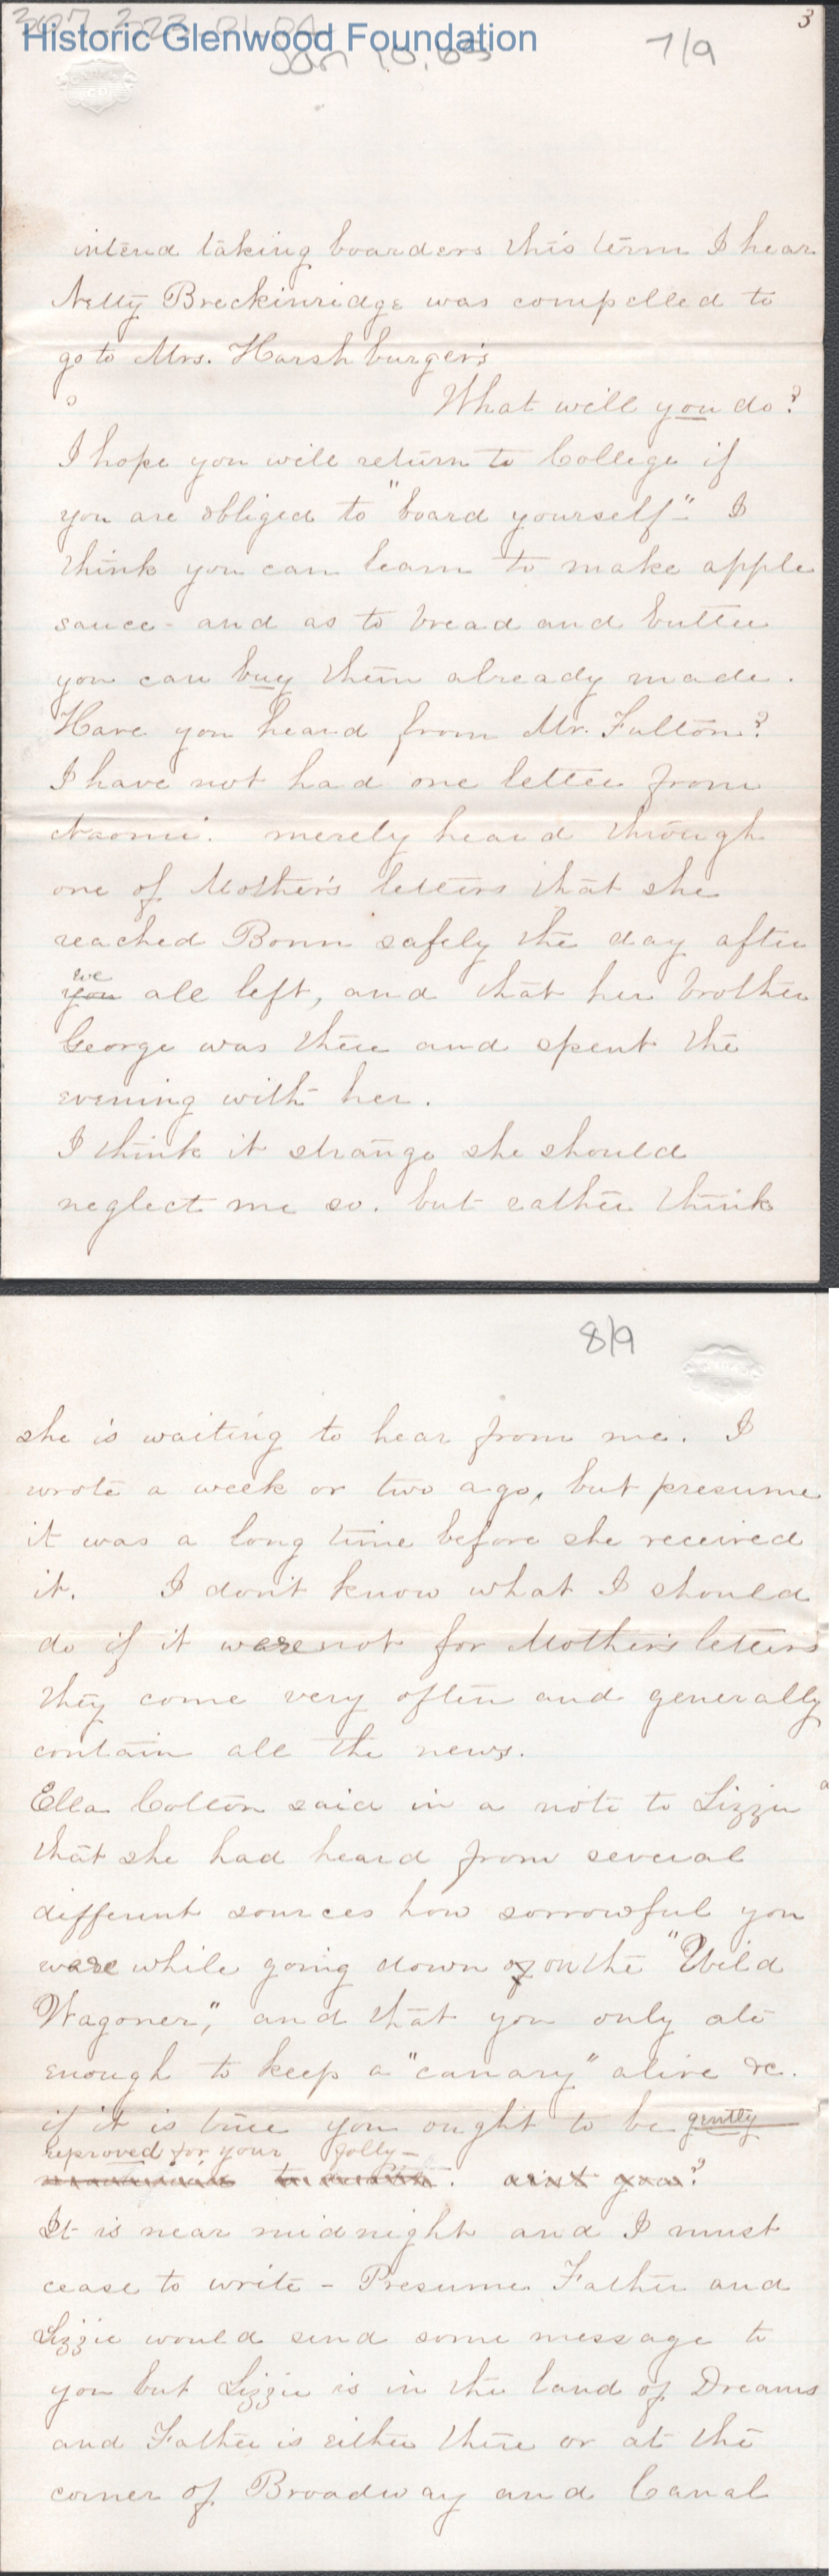 3
Historic Glenwood Foundation
7/9
intend taking boarders this term I hear
Netty Breckinridge was compelled to
go to Mrs. Harshburger's
What will you do?
I hope you will return to College if
you are obliged to "board yourself" I
think you can learn to make apple
sauce - and as to bread and butter
you can buy them already made.
Have you heard from Mr. Fulton?
I have not had one letter from
Naomi. merely heard through
one of Mother's letters that she
reached Bonn safely the day after
we
you all left, and that her brother
George was there and spent the
evening with her.
I think it strange she should
neglect me so. but rather think
8/9
she is waiting to hear from me. I
wrote a week or two ago, but presume
it was a long time before she received
it. I don't know what I should
do if it were not for Mother's letters
they come very often and generally
contain all the news.
Ella Colton said in a note to Lizzie
that she had heard from several
different sources how sorrowful you
were while going down on the "Wild
Wagoner", and that you only ate
enough to keep a "canary" alive &c.
if it is true you ought to be gently
reproved for your folly-
aint you?
It is near midnight and I must
cease to write - Presume Father and
Lizzie would send some message to
you but Lizzie is in the land of Dreams
and Father is either there or at the
corner of Broadway and Canal